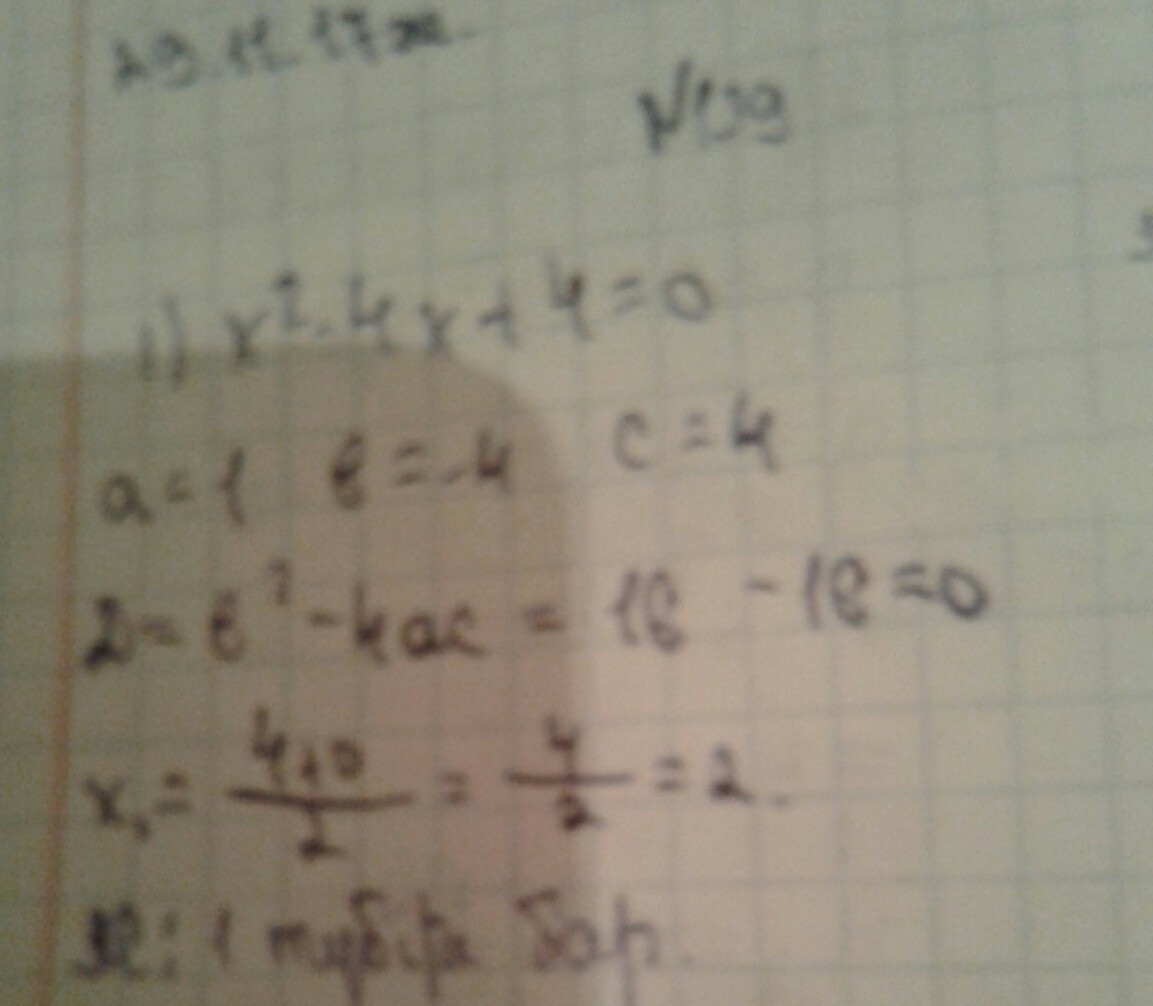 29.11.17ж.
№139
1) x²-4x+4=0
a=1 в=-4 c=4
D=в²-4ac=16-16=0
x₁=4+0/2=4/2=2.
Ж: 1 түбірі бар.